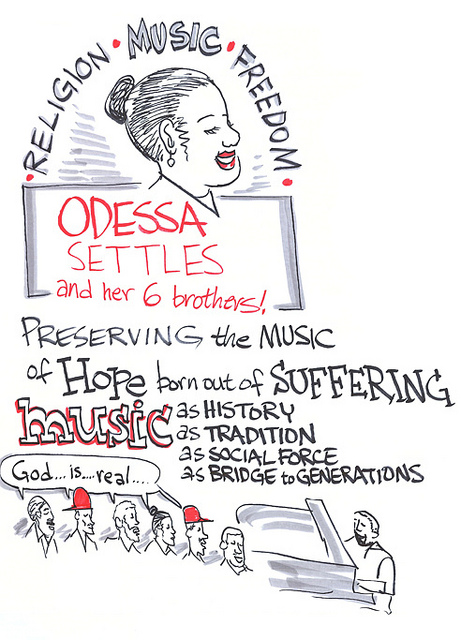 RELIGION • MUSIC • FREEDOM •
ODESSA
SETTLES
and her 6 brothers!
PRESERVING the MUSIC
of HOPE born out of SUFFERING
music as HISTORY
as TRADITION
as SOCIAL FORCE
as BRIDGE to GENERATIONS
God...is....real....